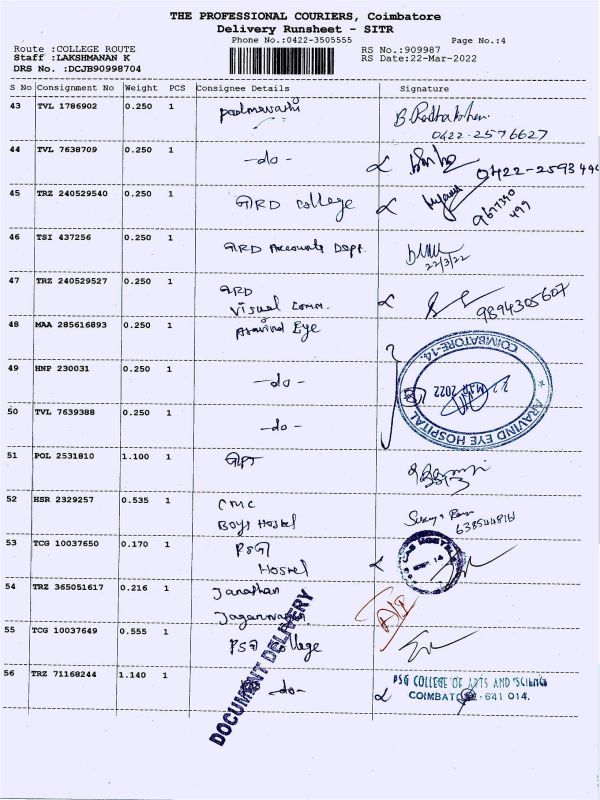 THE PROFESSIONAL COURIERS, Coimbatore
Delivery Runsheet - SITR
Phone No.:0422-3505555
Page No.:4
Route :COLLEGE ROUTE
RS No.:909987
Staff :LAKSHMANAN K
RS Date:22-Mar-2022
DRS No. :DCJB90998704
S No Consignment No Weight PCS Consignee Details Signature
43 TVL 1786902 0.250 1
0422-2576627
44 TVL 7638709 0.250 1 -do-
45 TRZ 240529540 0.250 1 GRD College
46 TSI 437256 0.250 1 GRD Accounts Dept.
22/3/22
47 TRZ 240529527 0.250 1 GRD
Visual Comm.
9894305607
48 MAA 285616893 0.250 1 Aravind Eye
49 HNP 230031 0.250 1 -do-
50 TVL 7639388 0.250 1 -do-
COIMBATORE-14.
22 MAR 2022
★ ARAVIND EYE HOSPITAL ★
51 POL 2531810 1.100 1
52 HSR 2329257 0.535 1 CMC
Boys Hostel
53 TCG 10037650 0.170 1 PSG
Hostel
54 TRZ 365051617 0.216 1 Janathan
55 TCG 10037649 0.555 1 PSG College
DOCUMENT DELIVERY
56 TRZ 71168244 1.140 1 -do-
PSG COLLEGE OF ARTS AND SCIENCE
COIMBATORE - 641 014.